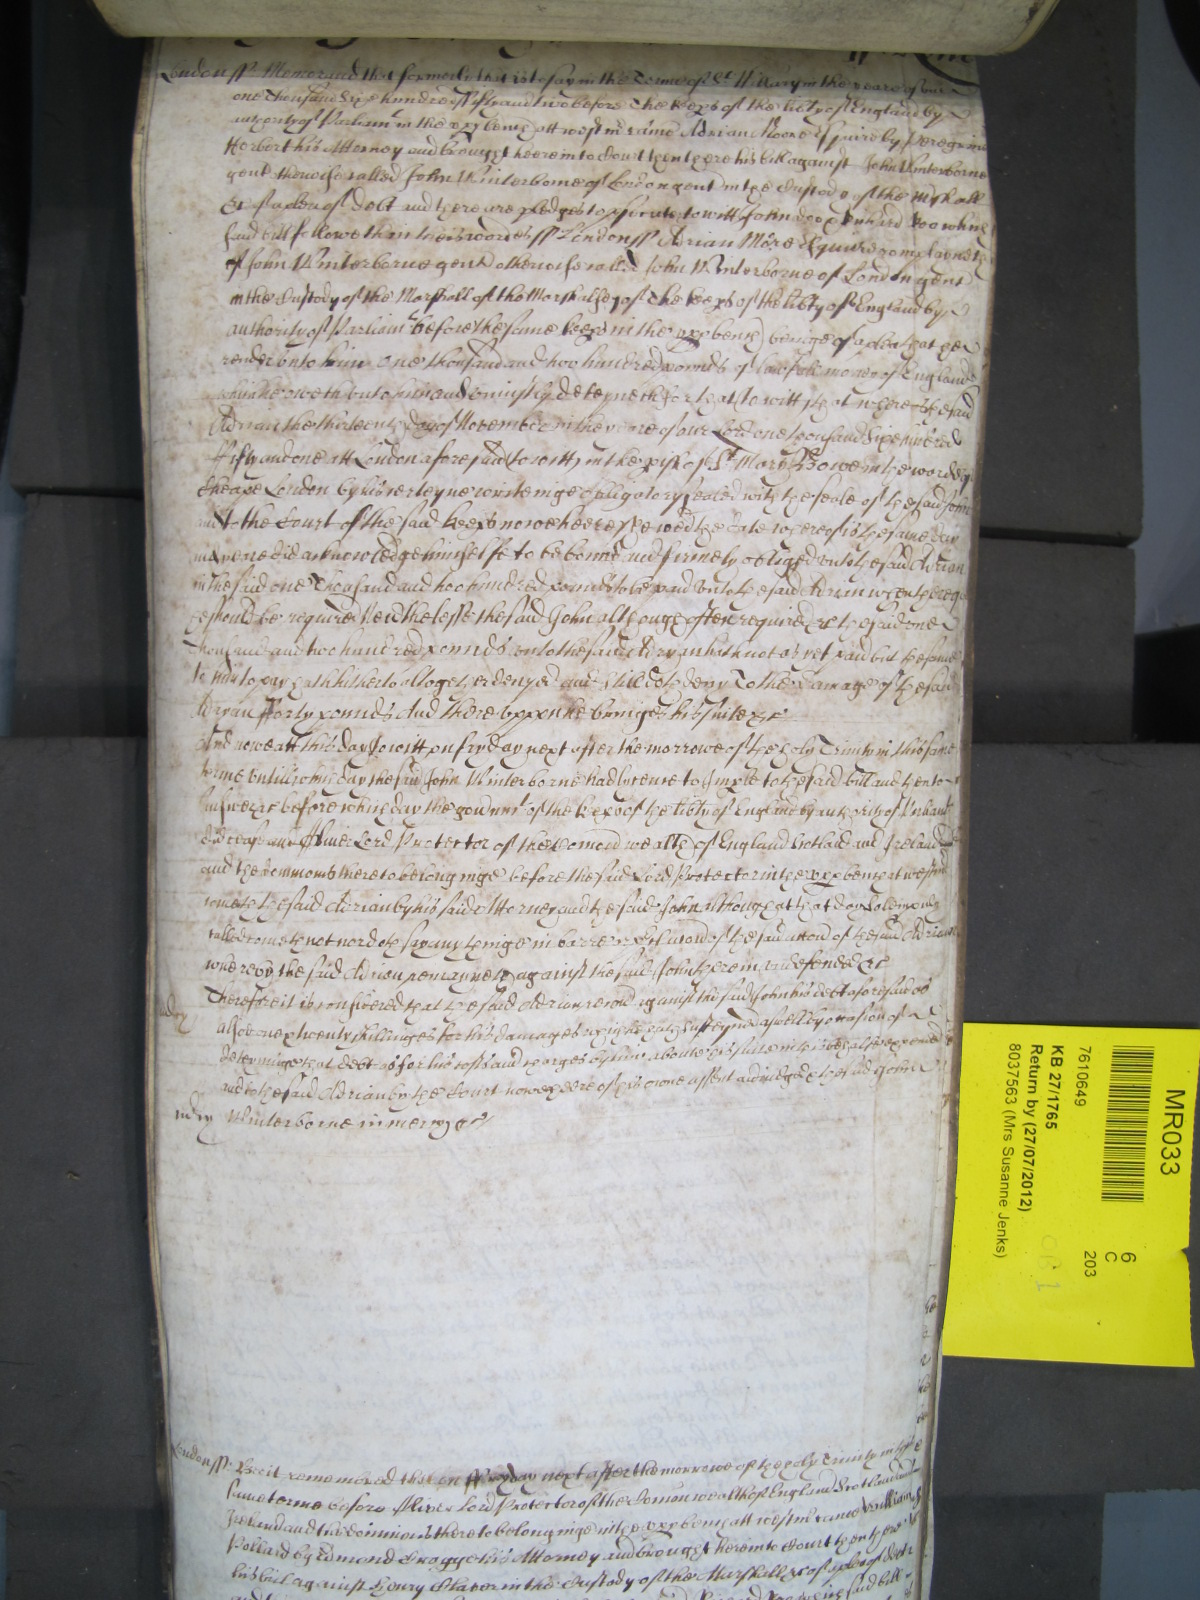 London ss Memorand that formerly that is to say in the Terme of St Hillary in the yeare of our
one Thousand Sixe hundred fifty and two before The Keeps of the libty of England by
authority of Parliamt in the upp bench att westm came Adrian Moore Esquire by Peregrine
Herbert his Attorney and brought heere into Court then there his bill against John Winterborne
gent otherwise called John Winterborne of London gent in the Custody of the Mrshall
&c of a plea of debt and there are pledges to psecute to witt John Doo Richard Roo which
said bill followeth in theis wordes ss London ss Adrian More Esquire complayneth
of John Winterborne gent otherwise called John Winterborne of London gent
in the Custody of the Marshall of the Marshalsey of The Keeps of the libty of England by
authority of Parliamt before the same Keeps in the upp bench beinge of a plea that he
render unto him one thousand and two hundred pounds of lawfull money of England
which he oweth unto him and uniustly deteyneth for that to witt that whereas the said
Adrian the thirteenth day of November in the yeare of our Lord one thousand Sixe hundred
fifty and one att London aforesaid to witt in the pish of St Mary Bowe in the ward of
Cheape London by his certeyne writeinge obligatory sealed with the seale of the said John
and to the Court of the said Keeps nowe heere shewed the date whereof is the same day
and yeare did acknowledge himselfe to be bound and firmely obliged unto the said Adrian
in the said one Thousand and two hundred pounds to be paid unto the said Adrian when he
should be required Nevertheless the said John although often required &c the said one
thousand and two hundred pounds unto the said Adryan hath not as yet paid but the same
to him to pay hath hitherto altogether denyed and still doth deny To the damage of the said
Adryan Forty pounds And thereuppon he bringes his suite &c
And nowe att this day to witt on fryday next after the morrowe of the holy Trinity in this same
terme untill which day the said John Winterborne had lycence to Imple to the said bill and then to
answere &c before which day the goverment of the Keeps of the libty of England by authority of Parliamt
did cease and Oliver Lord Protector of the Comonwealth of England Scotland and Ireland
and the dominions thereto belonginge before the said Lord Protector in the upp bench att westm
cometh the said Adrian by his said Attorney and the said John although att that day solempnly
called cometh not nor doth say any thinge in barre or of the said accon of the said Adrian
whereby the said Adrian remayneth against the said John therein undefended &c
Therefore it is considered that the said Adrian recover against the said John his debt aforesaid as
also twenty shillinges for his damages which he hath susteyned aswell by occasion of
deteyninge that debt as for his costs and charges by him about his suite in this behalfe expended
and to the said Adrian by the Court nowe here of his owne assent adiudged And the said John
Winterborne in mercy &c
London ss Be it remembred that on Fryday next after the morrowe of the holy Trinity in this
same terme before Oliver Lord Protector of the Comonwealth of England Scotland and
Ireland and the dominions thereto belonginge in the upp bench att westm came William
Pollard by Edmond Froggett his Attorney and brought here into Court then there
his bill against Henry Slater in the Custody of the Marshall &c of a plea of debt
MR033
6
C
203
7610649
KB 27/1765
Return by (27/07/2012)
8037563 (Mrs Susanne Jenks)